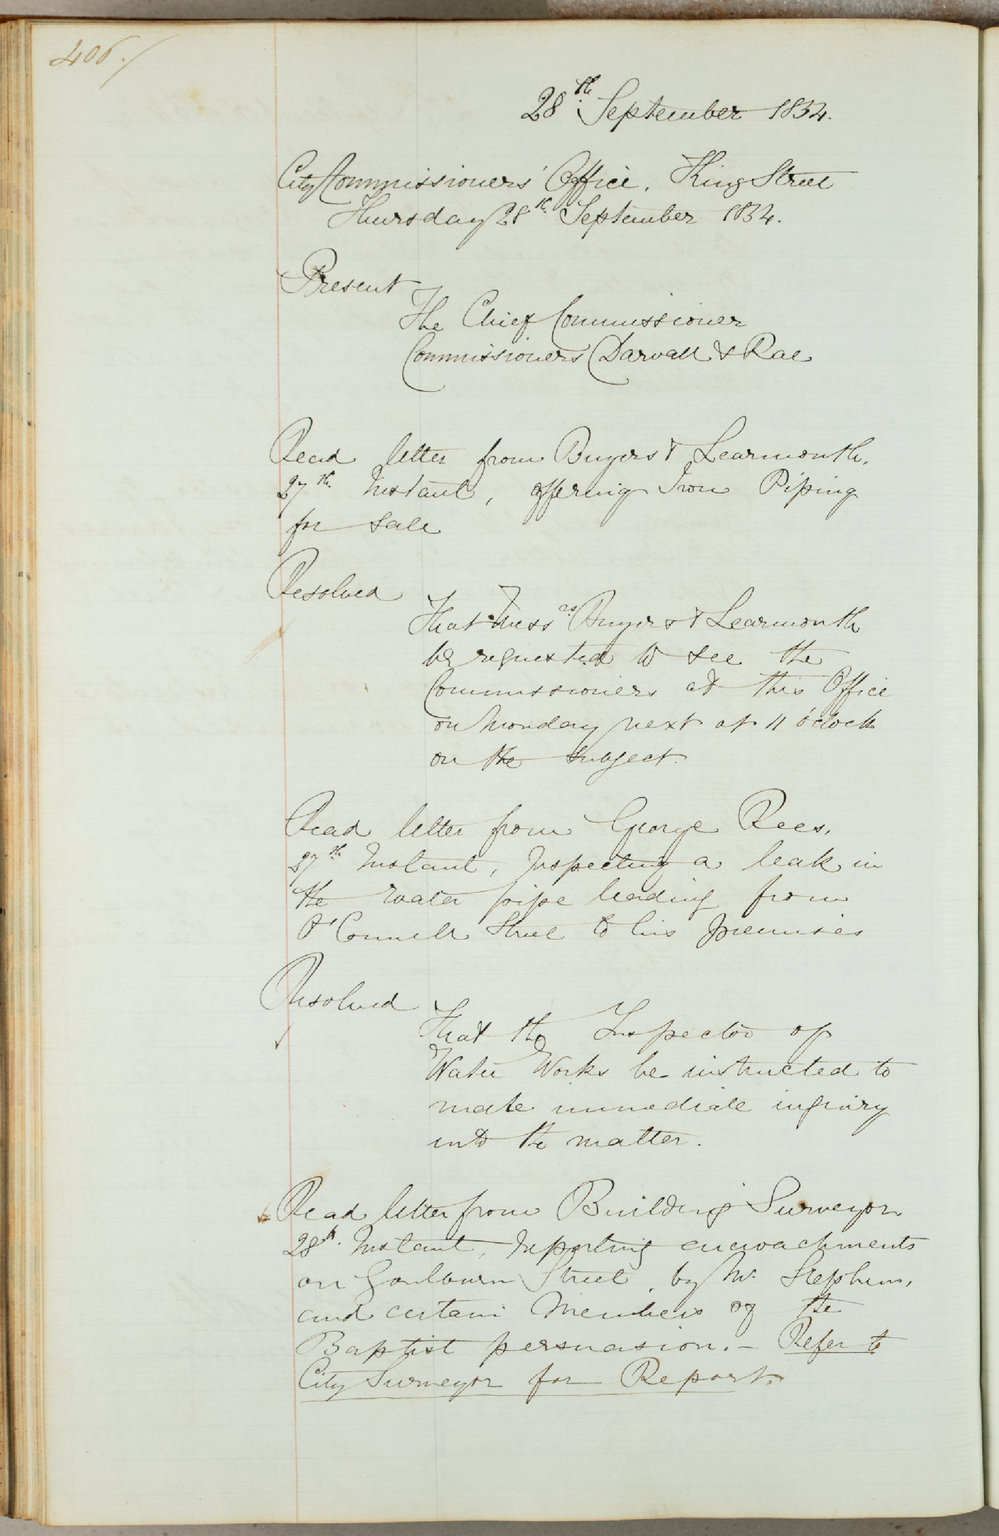 406./
28th September 1854.
City Commissioners' Office, King Street
Thursday 28th September 1854.
Present
The Chief Commissioner
Commissioners Darvall & Rae
Read letter from Buyers & Learmonth,
27th Instant, offering Iron Piping
for sale
Resolved
That Messrs Buyers & Learmonth
be requested to see the
Commissioners at this Office
on Monday next at 11 o'clock
on the subject.
Read letter from George Rees,
27th Instant, respecting a leak in
the water pipe leading from
O'Connell Street to his premises
Resolved
That the Inspector of
Water Works be instructed to
make immediate inquiry
into the matter.
Read letter from Building Surveyor
28th Instant, reporting encroachments
on Goulburn Street by Mr Stephens,
and certain Members of the
Baptist persuasion. - Refer to
City Surveyor for Report.